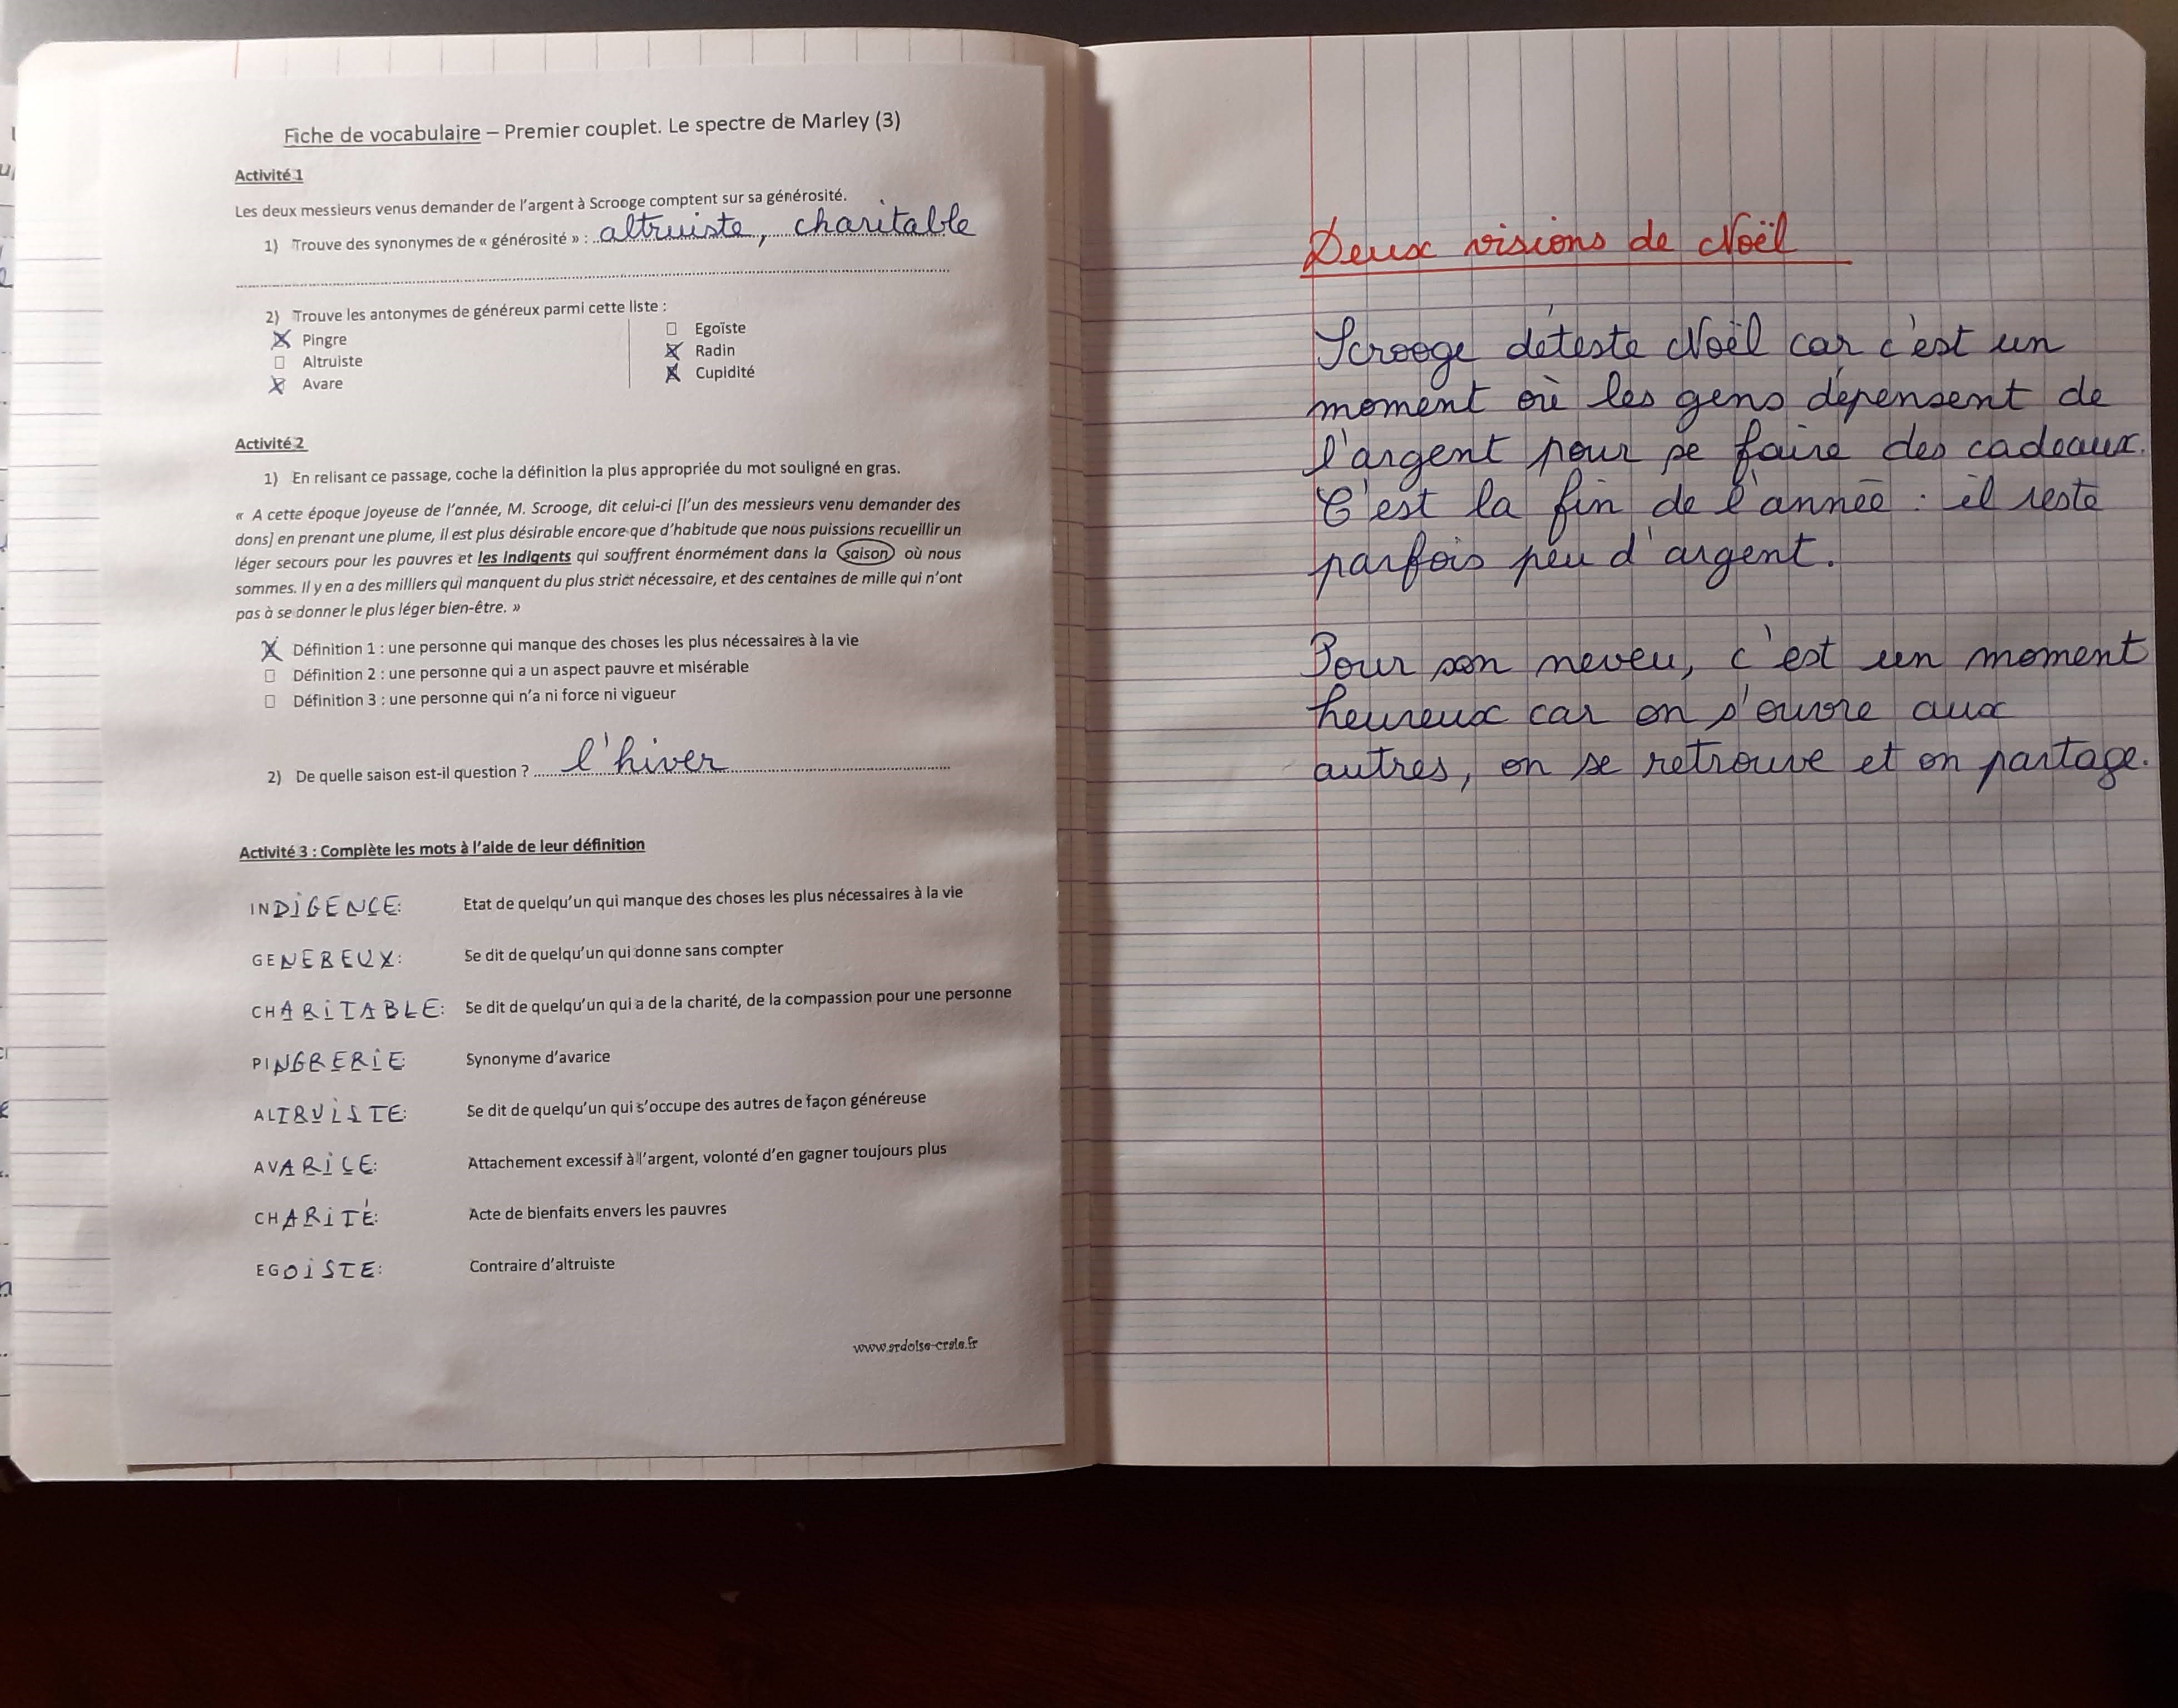 Fiche de vocabulaire – Premier couplet. Le spectre de Marley (3)
Activité 1
Les deux messieurs venus demander de l'argent à Scrooge comptent sur sa générosité.
1) Trouve des synonymes de « générosité » : altruiste, charitable
2) Trouve les antonymes de généreux parmi cette liste :
Pingre
Altruiste
Avare
Egoïste
Radin
Cupidité
Activité 2
1) En relisant ce passage, coche la définition la plus appropriée du mot souligné en gras.
« A cette époque joyeuse de l'année, M. Scrooge, dit celui-ci [l'un des messieurs venu demander des
dons] en prenant une plume, il est plus désirable encore que d'habitude que nous puissions recueillir un
léger secours pour les pauvres et les indigents qui souffrent énormément dans la saison où nous
sommes. Il y en a des milliers qui manquent du plus strict nécessaire, et des centaines de mille qui n'ont
pas à se donner le plus léger bien-être. »
Définition 1 : une personne qui manque des choses les plus nécessaires à la vie
Définition 2 : une personne qui a un aspect pauvre et misérable
Définition 3 : une personne qui n'a ni force ni vigueur
2) De quelle saison est-il question ? l'hiver
Activité 3 : Complète les mots à l'aide de leur définition
INDIGENCE: Etat de quelqu'un qui manque des choses les plus nécessaires à la vie
GENEREUX: Se dit de quelqu'un qui donne sans compter
CHARITABLE: Se dit de quelqu'un qui a de la charité, de la compassion pour une personne
PINGRERIE: Synonyme d'avarice
ALTRUISTE: Se dit de quelqu'un qui s'occupe des autres de façon généreuse
AVARICE: Attachement excessif à l'argent, volonté d'en gagner toujours plus
CHARITÉ: Acte de bienfaits envers les pauvres
EGOISTE: Contraire d'altruiste
www.ardoise-craie.fr
Deux visions de Noël
Scrooge déteste Noël car c'est un
moment où les gens dépensent de
l'argent pour se faire des cadeaux.
C'est la fin de l'année : il reste
parfois peu d'argent.
Pour son neveu, c'est un moment
heureux car on s'ouvre aux
autres, on se retrouve et on partage.